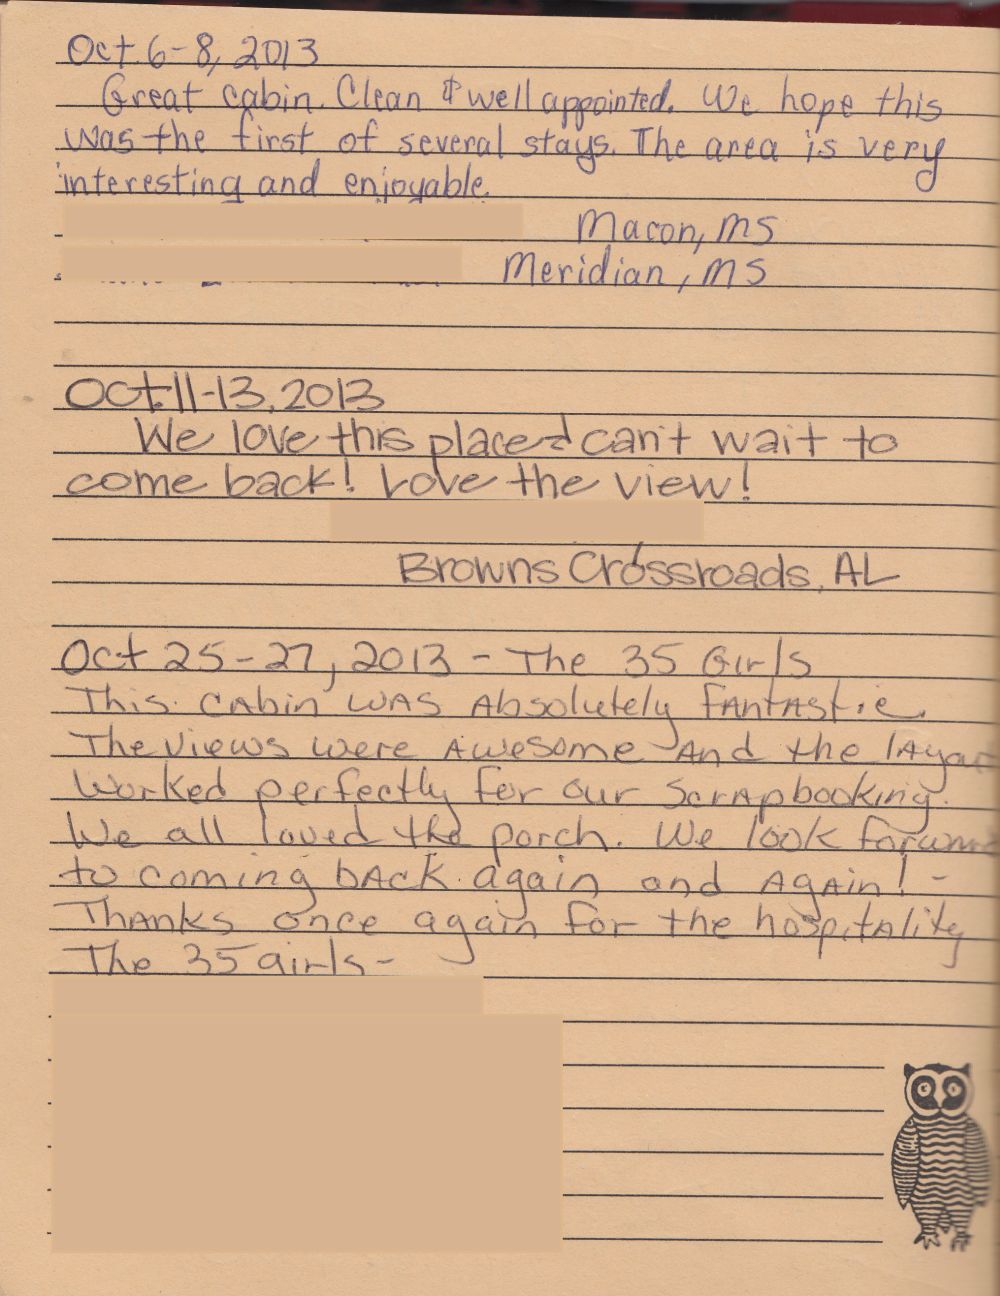 Oct. 6-8, 2013
Great cabin. Clean & well appointed. We hope this
was the first of several stays. The area is very
interesting and enjoyable.
Macon, MS
Meridian, MS
Oct. 11-13, 2013
We love this place & can't wait to
come back! Love the view!
Browns Crossroads, AL
Oct 25-27, 2013 - The 35 Girls
This cabin was Absolutely fantastic.
The views were Awesome And the
worked perfectly for our Scrapbooking.
We all loved the porch. We look
to coming back again and Again! -
Thanks once again for the hospitality
The 35 girls -